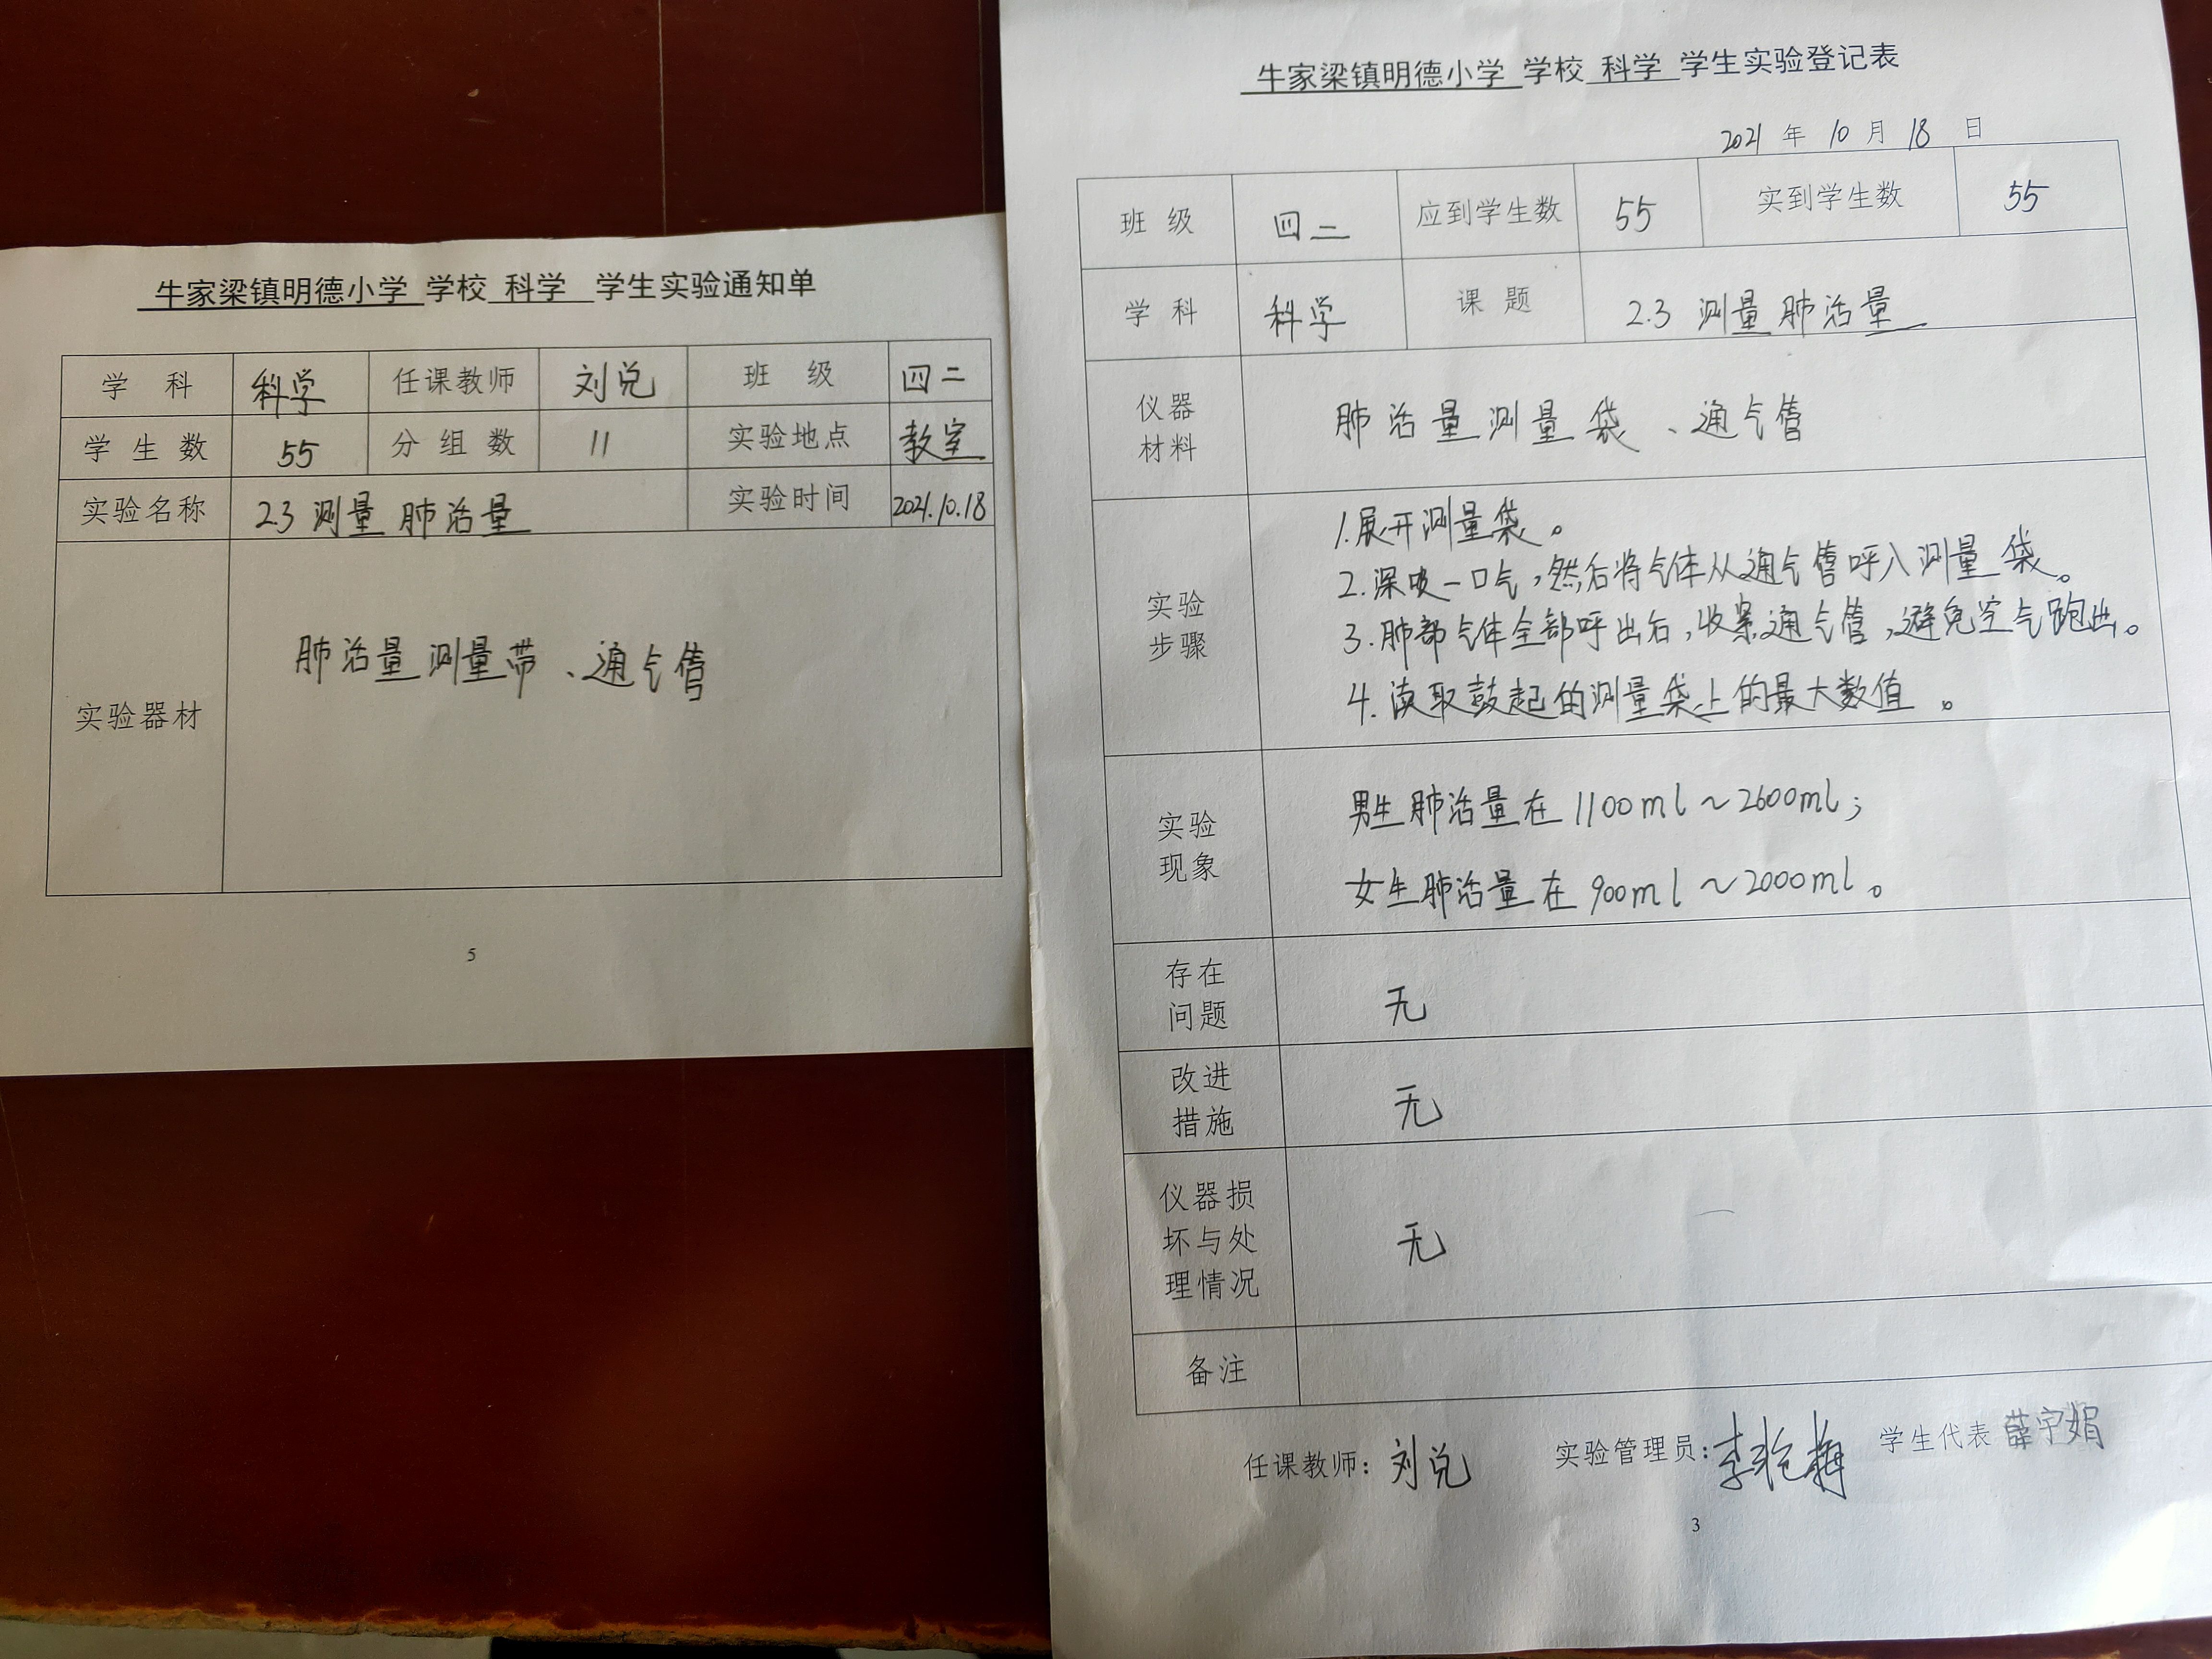 牛家梁镇明德小学 学校 科学 学生实验通知单
学 科 科学 任课教师 刘兑 班 级 四二
学 生 数 55 分 组 数 11 实验地点 教室
实验名称 2.3 测量 肺活量 实验时间 2021.10.18
实验器材 肺活量测量带、通气管
5
牛家梁镇明德小学 学校 科学 学生实验登记表
2021 年 10 月 18 日
班 级 四二 应到学生数 55 实到学生数 55
学 科 科学 课 题 2.3 测量肺活量
仪器
材料
肺活量测量袋、通气管
实验
步骤
1.展开测量袋。
2.深吸一口气,然后将气体从通气管呼入测量袋。
3.肺部气体全部呼出后,收紧通气管,避免空气跑出。
4.读取鼓起的测量袋上的最大数值。
实验
现象
男生肺活量在1100ml~2600ml;
女生肺活量在900ml~2000ml。
存在
问题
无
改进
措施
无
仪器损
坏与处
理情况
无
备注
任课教师:刘兑 实验管理员:李艳梅 学生代表 薛宇娟
3